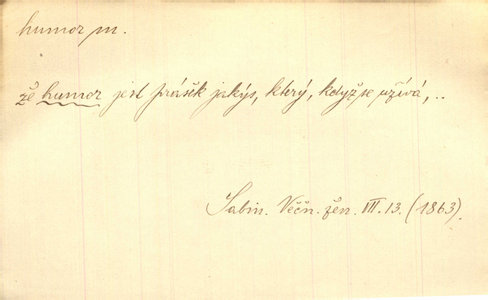 humor m.
že humor jest prášek jakýs, který, když se užívá,..
Sabin. Věčn. žen. III. 13. (1863).